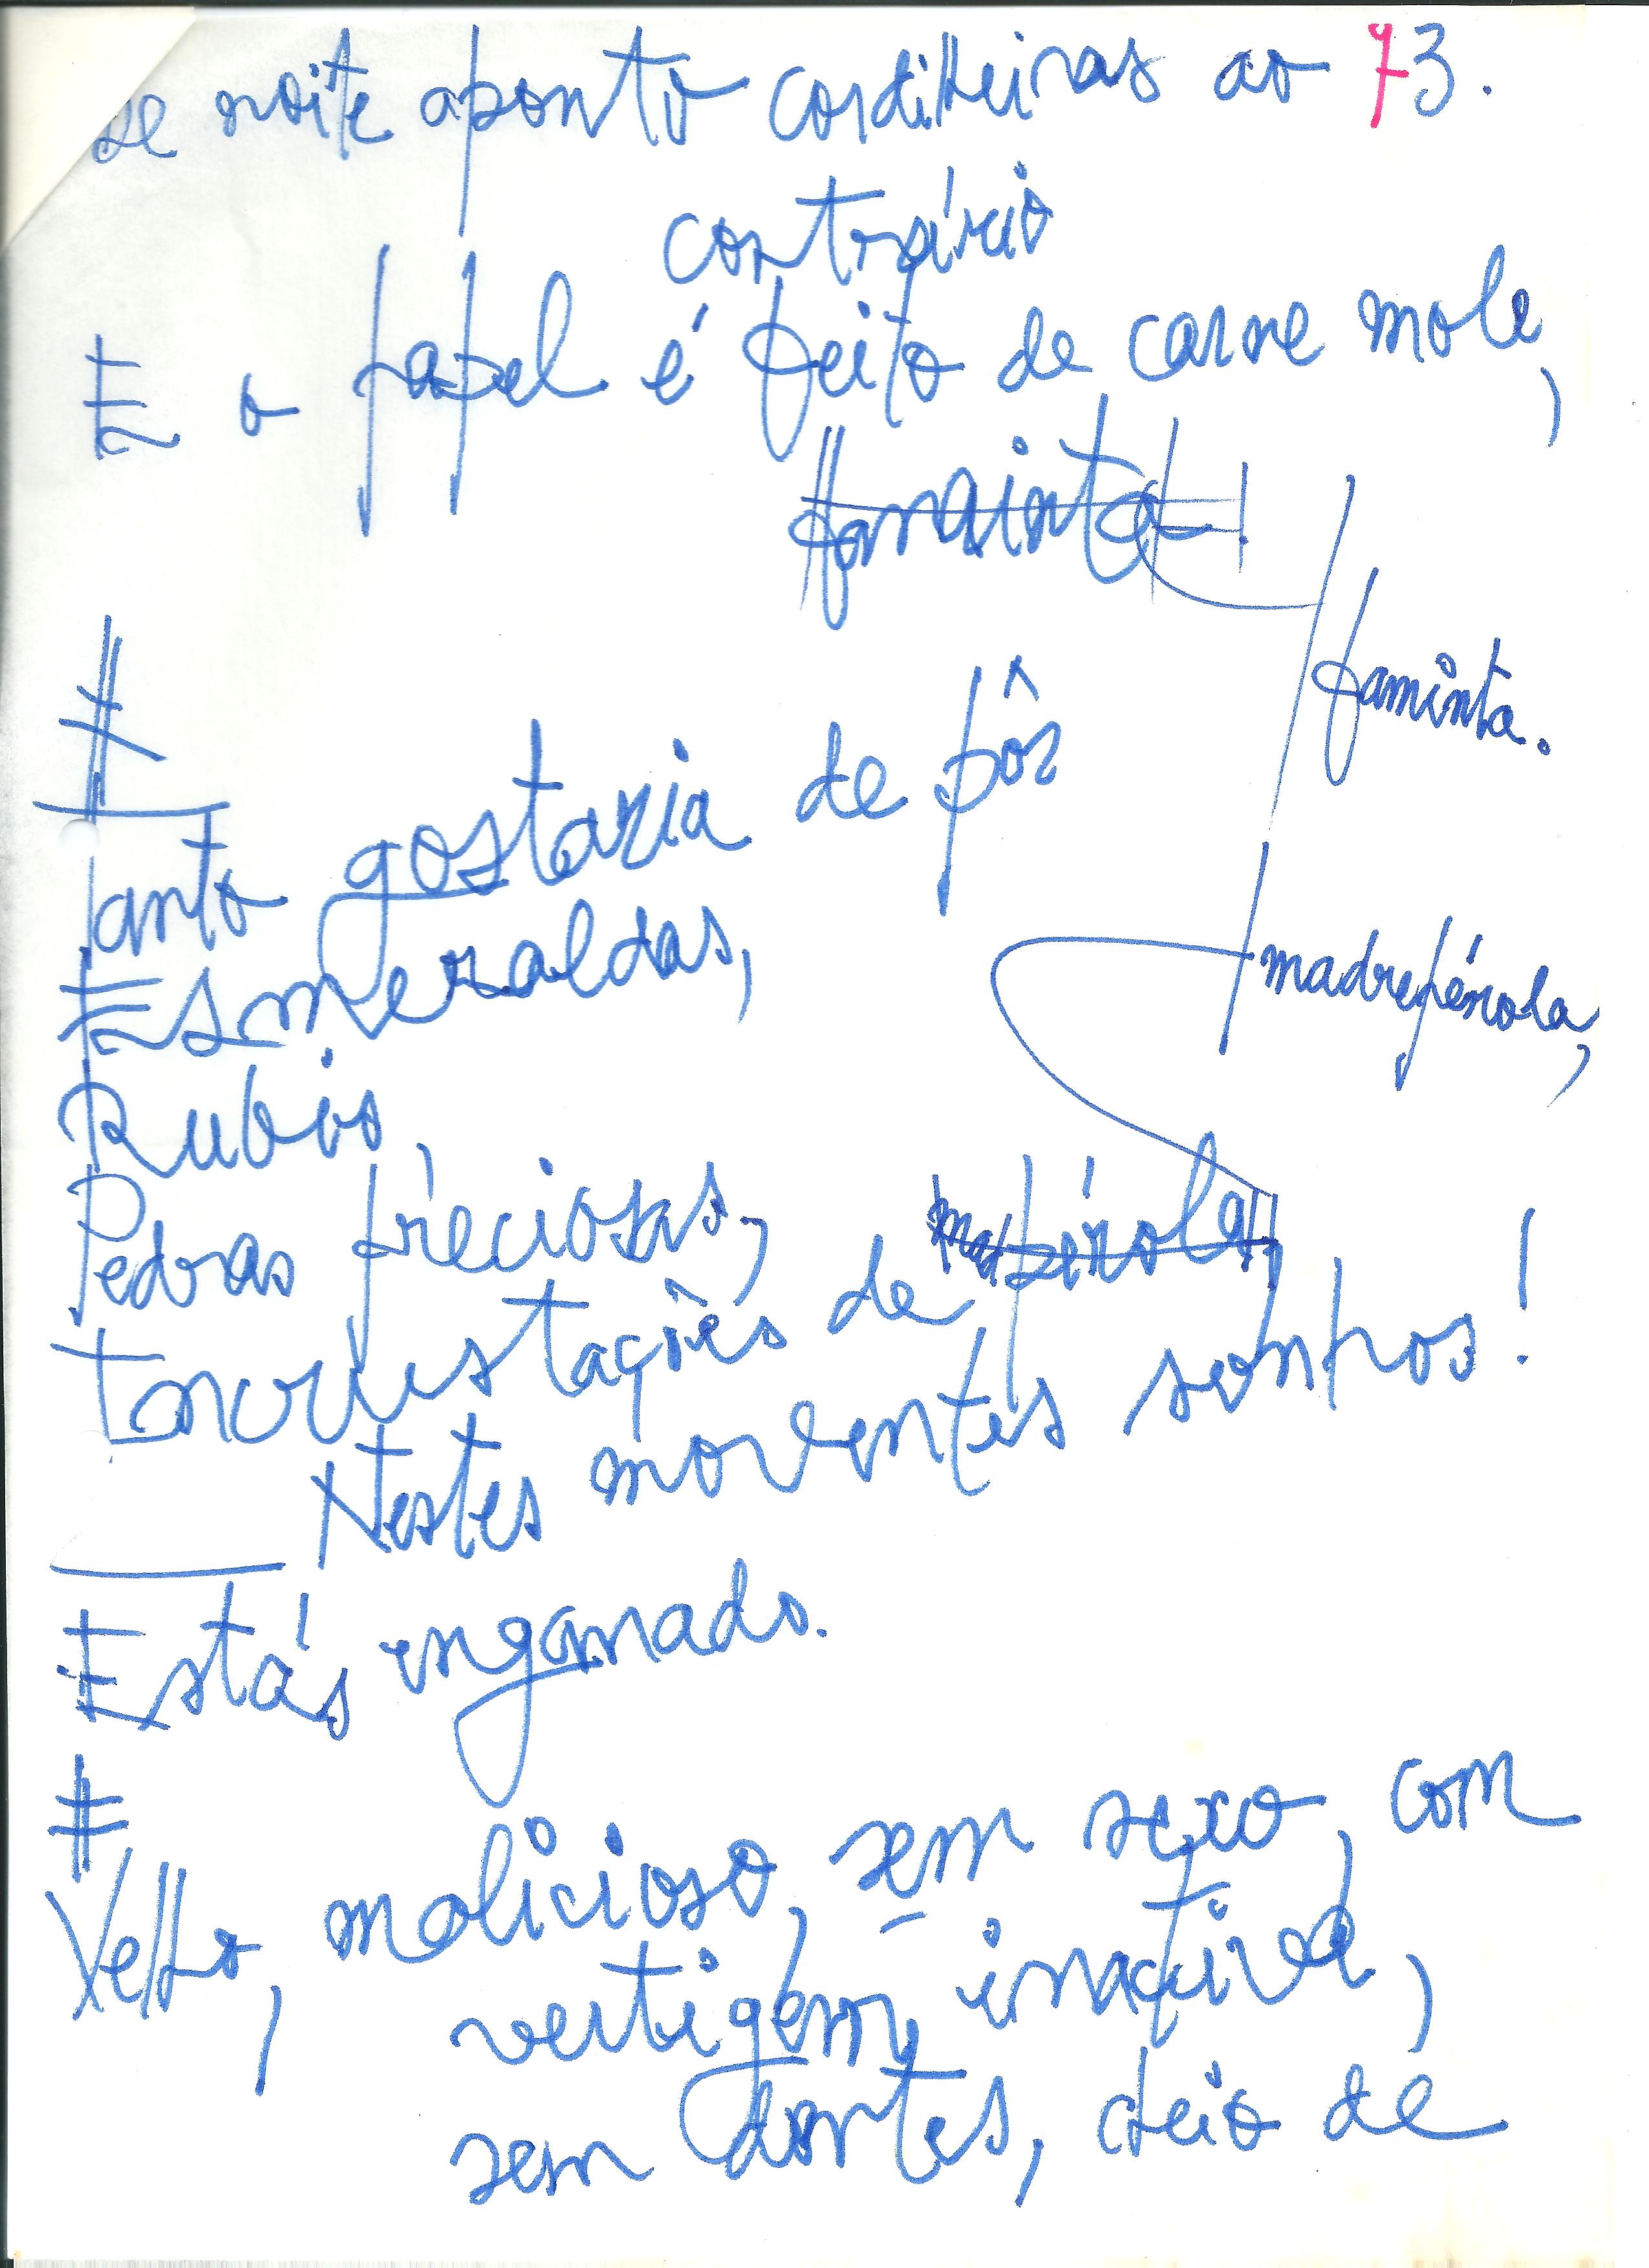 de noite aponto cordilheiras ao 73.
contrário
E o papel é feito de carne mole,
faminta!
faminta.
#
Tanto gostaria de pôr
Esmeraldas,
Rubis,
Pedras preciosas,
madrepérola,
Incrustações de madpérola,
Nestes moventes sonhos!
Estás enganado.
#
Velho, malicioso, sem sexo, com
vertigem inactival,
sem dentes, cheio de